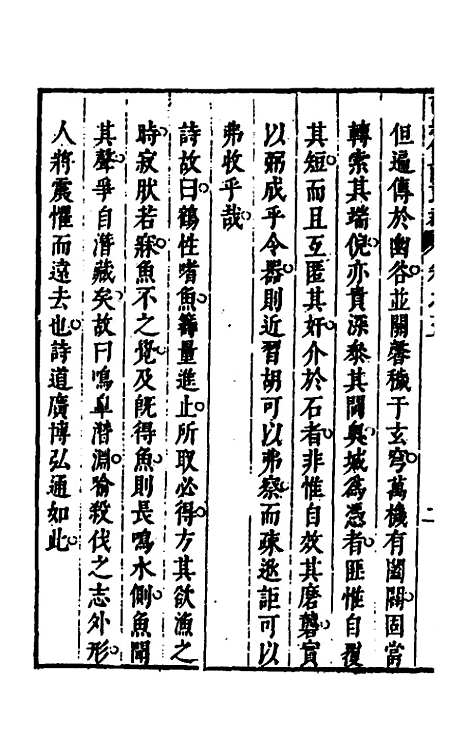 但遍傳於幽谷並關馨穢于玄穹萬機有闔闢固當
轉索其端倪亦貴深叅其閫奥城為憑者匪惟自覆
其短而且互匿其奸介於石者非惟自效其磨礱實
以弼成乎令器則近習胡可以弗察而疎逖詎可以
弗收乎哉
詩故曰鶴性嗜魚籌量進止所取必得方其欲漁之
時寂肰若寐魚不之覺及旣得魚則長鳴水側魚聞
其聲爭自潛藏矣故曰鳴皐潛淵喻殺伐之志外形
人將震懼而遠去也詩道廣博弘通如此
二